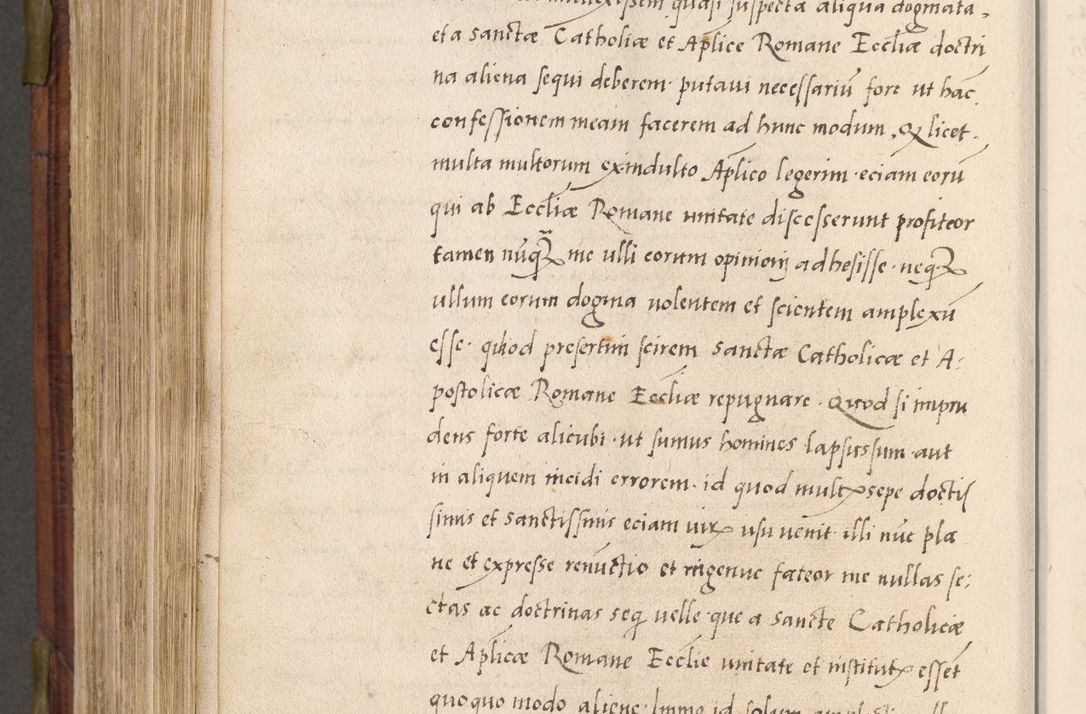 quasi suspecta aliqua dogmata,
et a sanctæ Catholicæ et Aplice Romane Eccliæ doctri
na aliena sequi deberem· putavi necessariū fore ut hac
confessionem meam facerem ad hunc modum, Qꝫ licet·
multa multorum ex indulto Aplico legerim· eciam eorū
qui ab Eccliæ Romane unitate discesserunt profiteor
tamen nūqꝫ me ulli eorum opinioni adhesisse· neqꝫ
ullum eorum dogma volentem et scientem amplexū
esse· quod presertim scirem sanctæ Catholicæ et A:
postolicæ Romane Eccliæ repugnare· Quod si impru
dens forte alicubi· ut sumus homines lapsus sum· aut
in aliquem incidi errorem· id quod multꝝ sepe doctis
simis et sanctissimis eciam virꝝ usu venit· illi nūc pla
ne et expresse renūctio et ingenue fateor me nullas se:
ctas ac doctrinas seq velle· que a sancte Catholicæ
et Aplicæ Romane Ecclie unitate et institutꝝ essēt
quoquo modo aliene· Immo id solum